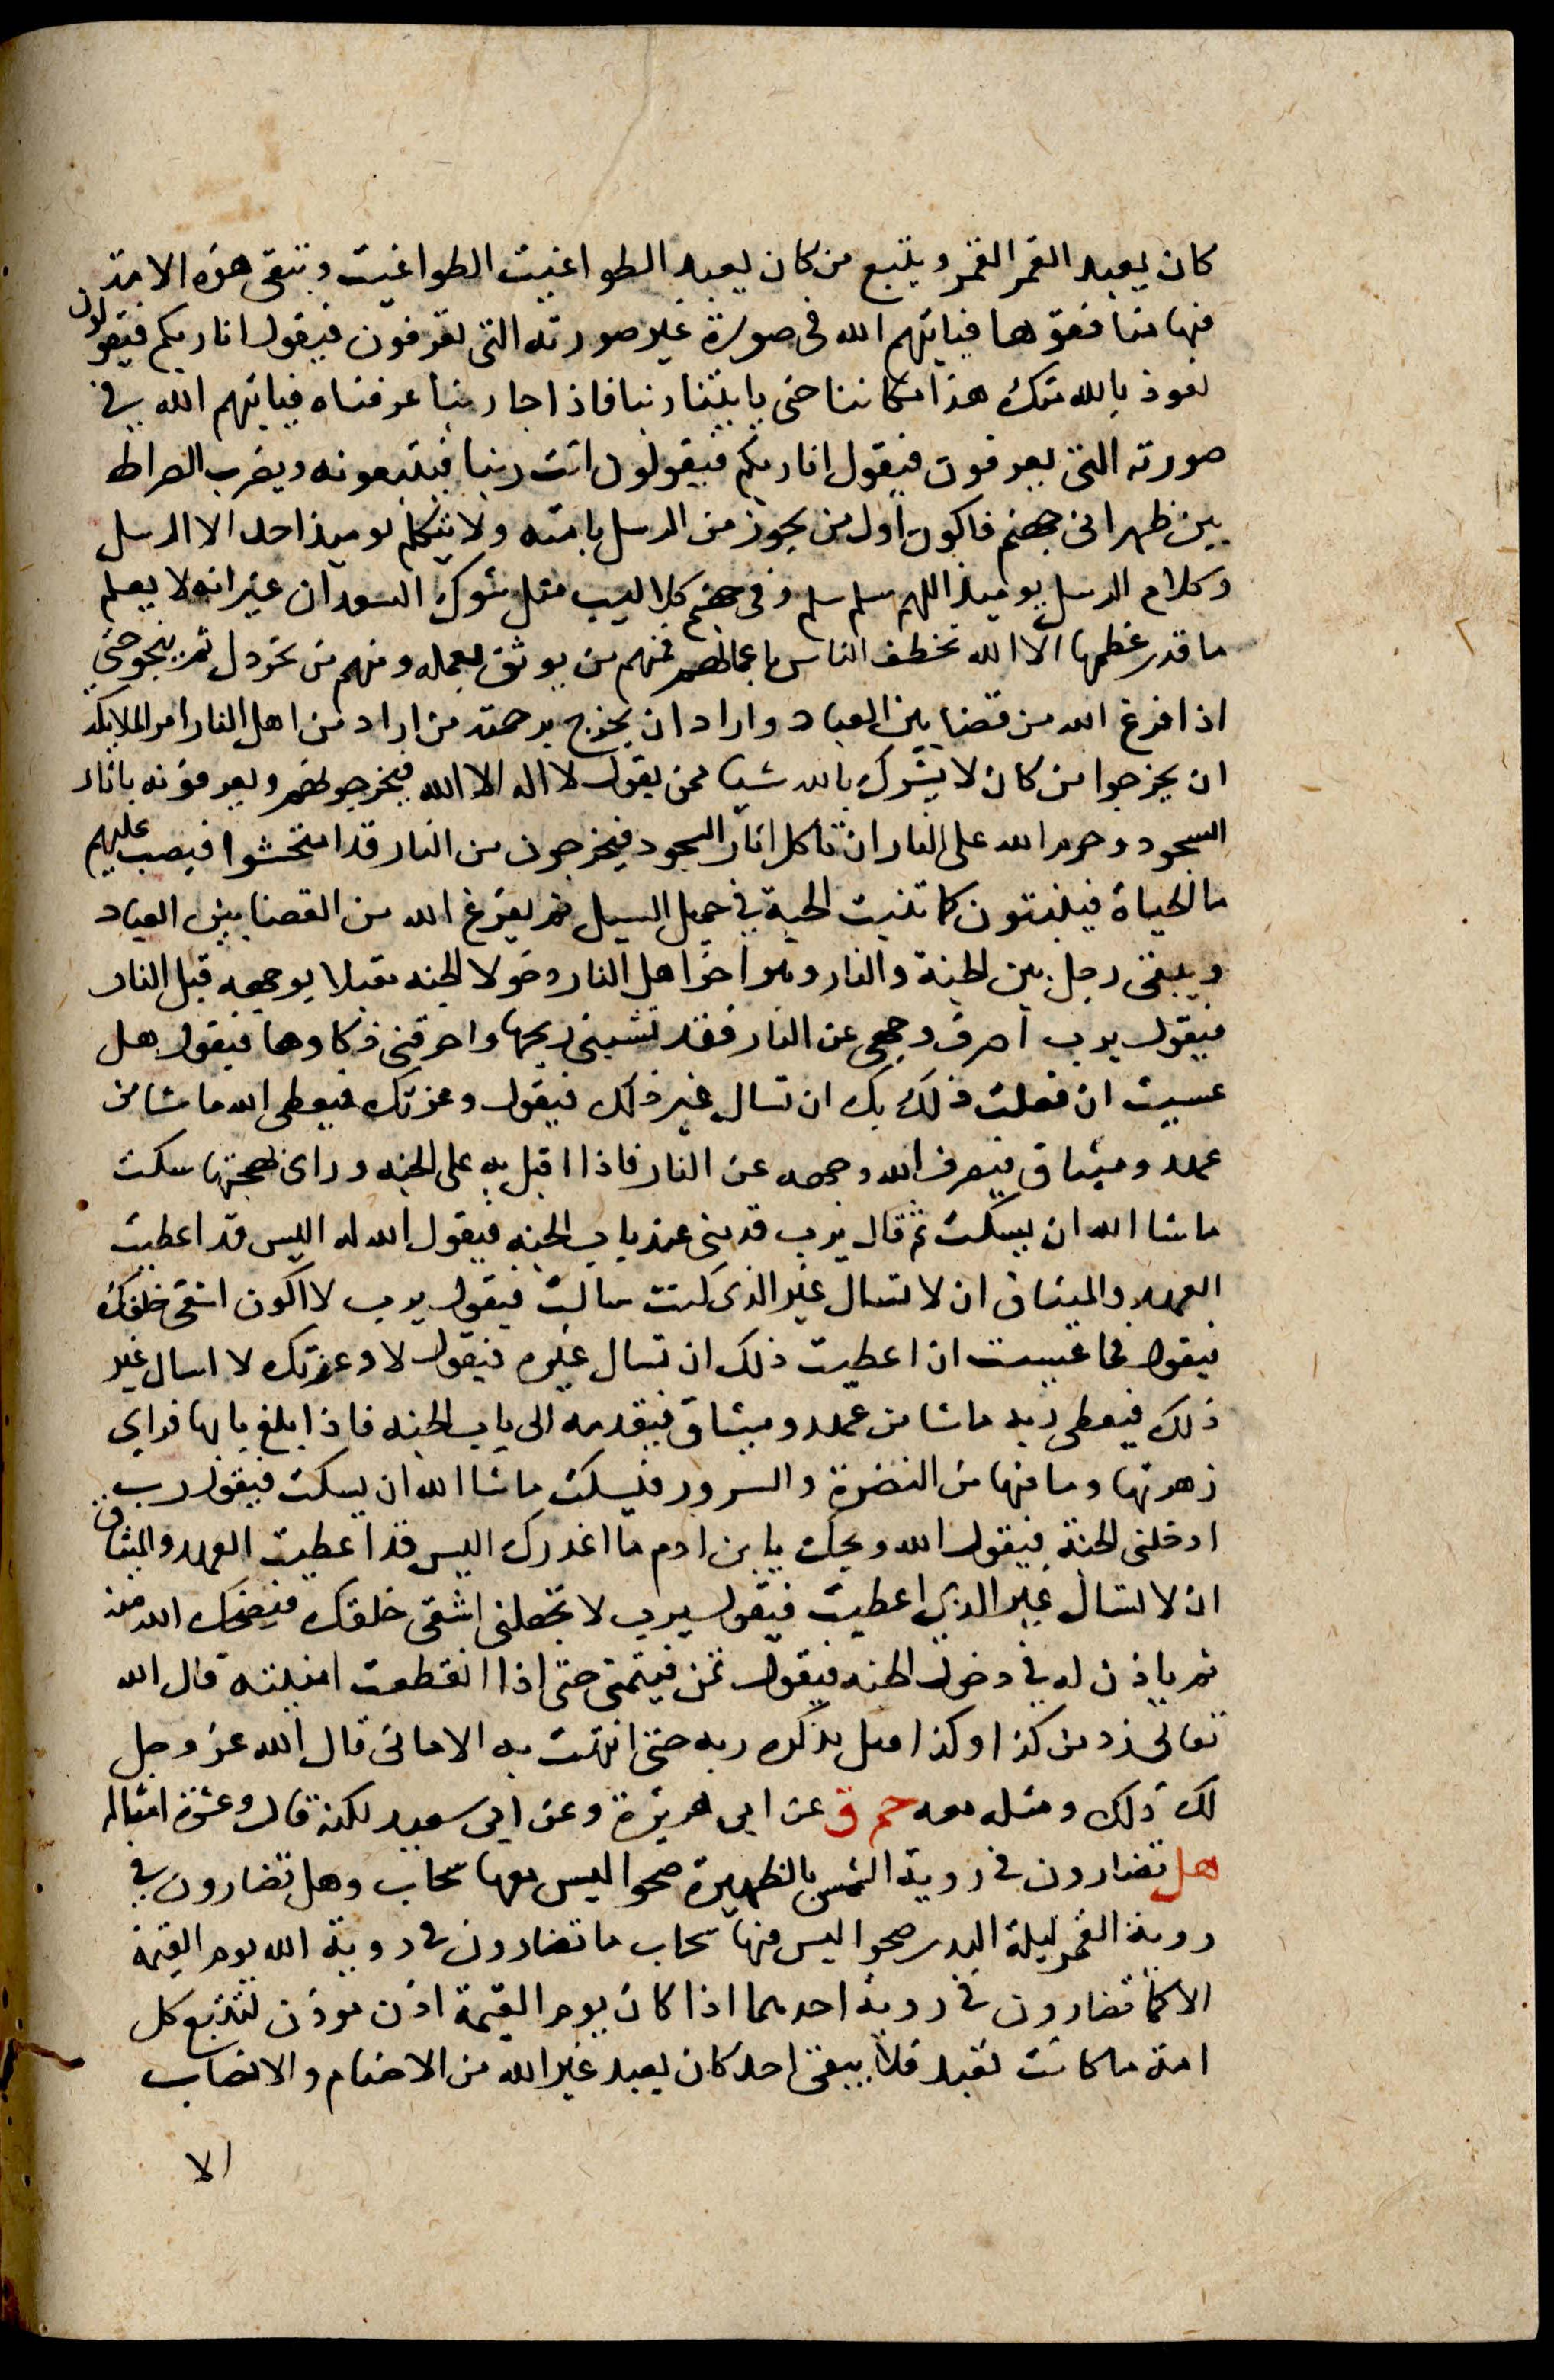 كان يعبد القمر القمر ويتبع من كان يعبد الطواغيت الطواغيت وتبقى هذه الامة
فيها منافقوها فياتيهم الله فى صورة غير صورته التى يعرفون فيقول انا ربكم فيقولون
نعوذ بالله منك هذا مكاننا حتى ياتينا ربنا فاذا جا ربنا عرفناه فياتيهم الله في
صورته التى يعرفون فيقول انا ربكم فيقولون انت ربنا فيتبعونه ويضرب الصراط
بين ظهرانى جهنم فاكون اول من يجوز من الرسل بامته ولا يتكلم يوميذ احد الا الرسل
وكلام الرسل يوميذ اللهم سلم سلم وفى جهنم كلاليب مثل شوك السعدان غير انه لا يعلم
ما قدر عظمها الا الله تخطف الناس باعمالهم فمنهم من يوثق بعمله ومنهم من يخردل ثم ينجو حتى
اذا فرغ الله من قضا بين العباد واراد ان يخرج برحمته من اراد من اهل النار امر الملايكة
ان يخرجوا من كان لا يشرك بالله شيا ممن يقول لا اله الا الله فيخرجونهم ويعرفونه باثار
السجود وحرم الله على النار ان تاكل اثار السجود فيخرجون من النار قد امتحشوا فيصب عليهم
ما الحياة فينبتون كما تنبت الحبة في حميل السيل ثم يفرغ الله من القضا بين العباد
ويبقى رجل بين الجنة والنار وهو اخر اهل النار دخولا الجنه مقبلا بوجهه قبل النار
فيقول يرب اصرف وجهى عن النار فقد قشبنى ريحها واحرقنى ذكاوها فيقول هل
عسيت ان فعلت ذلك بك ان تسال غير ذلك فيقول وعزتك فيعطى الله ما شا من
عهد وميثاق فيصرف الله وجهه عن النار فاذا اقبل به على الجنه وراى بهجتها سكت
ما شا الله ان يسكت ثم قال يرب قدمنى عند باب الجنه فيقول الله له اليس قد اعطيت
العهد والميثاق ان لا تسال غير الذى كنت سالت فيقول يرب لا اكون اشقى خلقك
فيقول فما عسيت ان اعطيت ذلك ان تسال غيره فيقول لا وعزتك لا اسال غير
ذلك فيعطى ربه ما شا من عهد وميثاق فيقدمه الى باب الجنه فاذا بلغ بابها فراى
زهرتها وما فيها من النضرة والسرور فيسكت ما شا الله ان يسكت فيقول رب
ادخلنى الجنة فيقول الله ويحك يا بن ادم ما اغدرك اليس قد اعطيت العهد والميثاق
ان لا تسال غير الذي اعطيت فيقول يرب لا تجعلنى اشقى خلقك فيضحك الله منه
ثم ياذن له في دخول الجنه فيقول تمن فيتمنى حتى اذا انقطعت امنيته قال الله
تعالى زد من كذا وكذا اقبل يذكره ربه حتى انتهت به الامانى قال الله عز وجل
لك ذلك ومثله معه حم ق عن ابى هريرة وعن ابى سعيد لكنه قال وعشرة امثاله
هل تضارون فى روية الشمس بالظهيرة صحوا ليس معها سحاب وهل تضارون في
روية القمر ليلة البدر صحوا ليس فيها سحاب ما تضارون فى روية الله يوم القيمة
الا كما تضارون فى روية احدهما اذا كان يوم القيمة اذن موذن لتتبع كل
امة ما كانت تعبد فلا يبقى احد كان يعبد غير الله من الاصنام والانصاب
الا